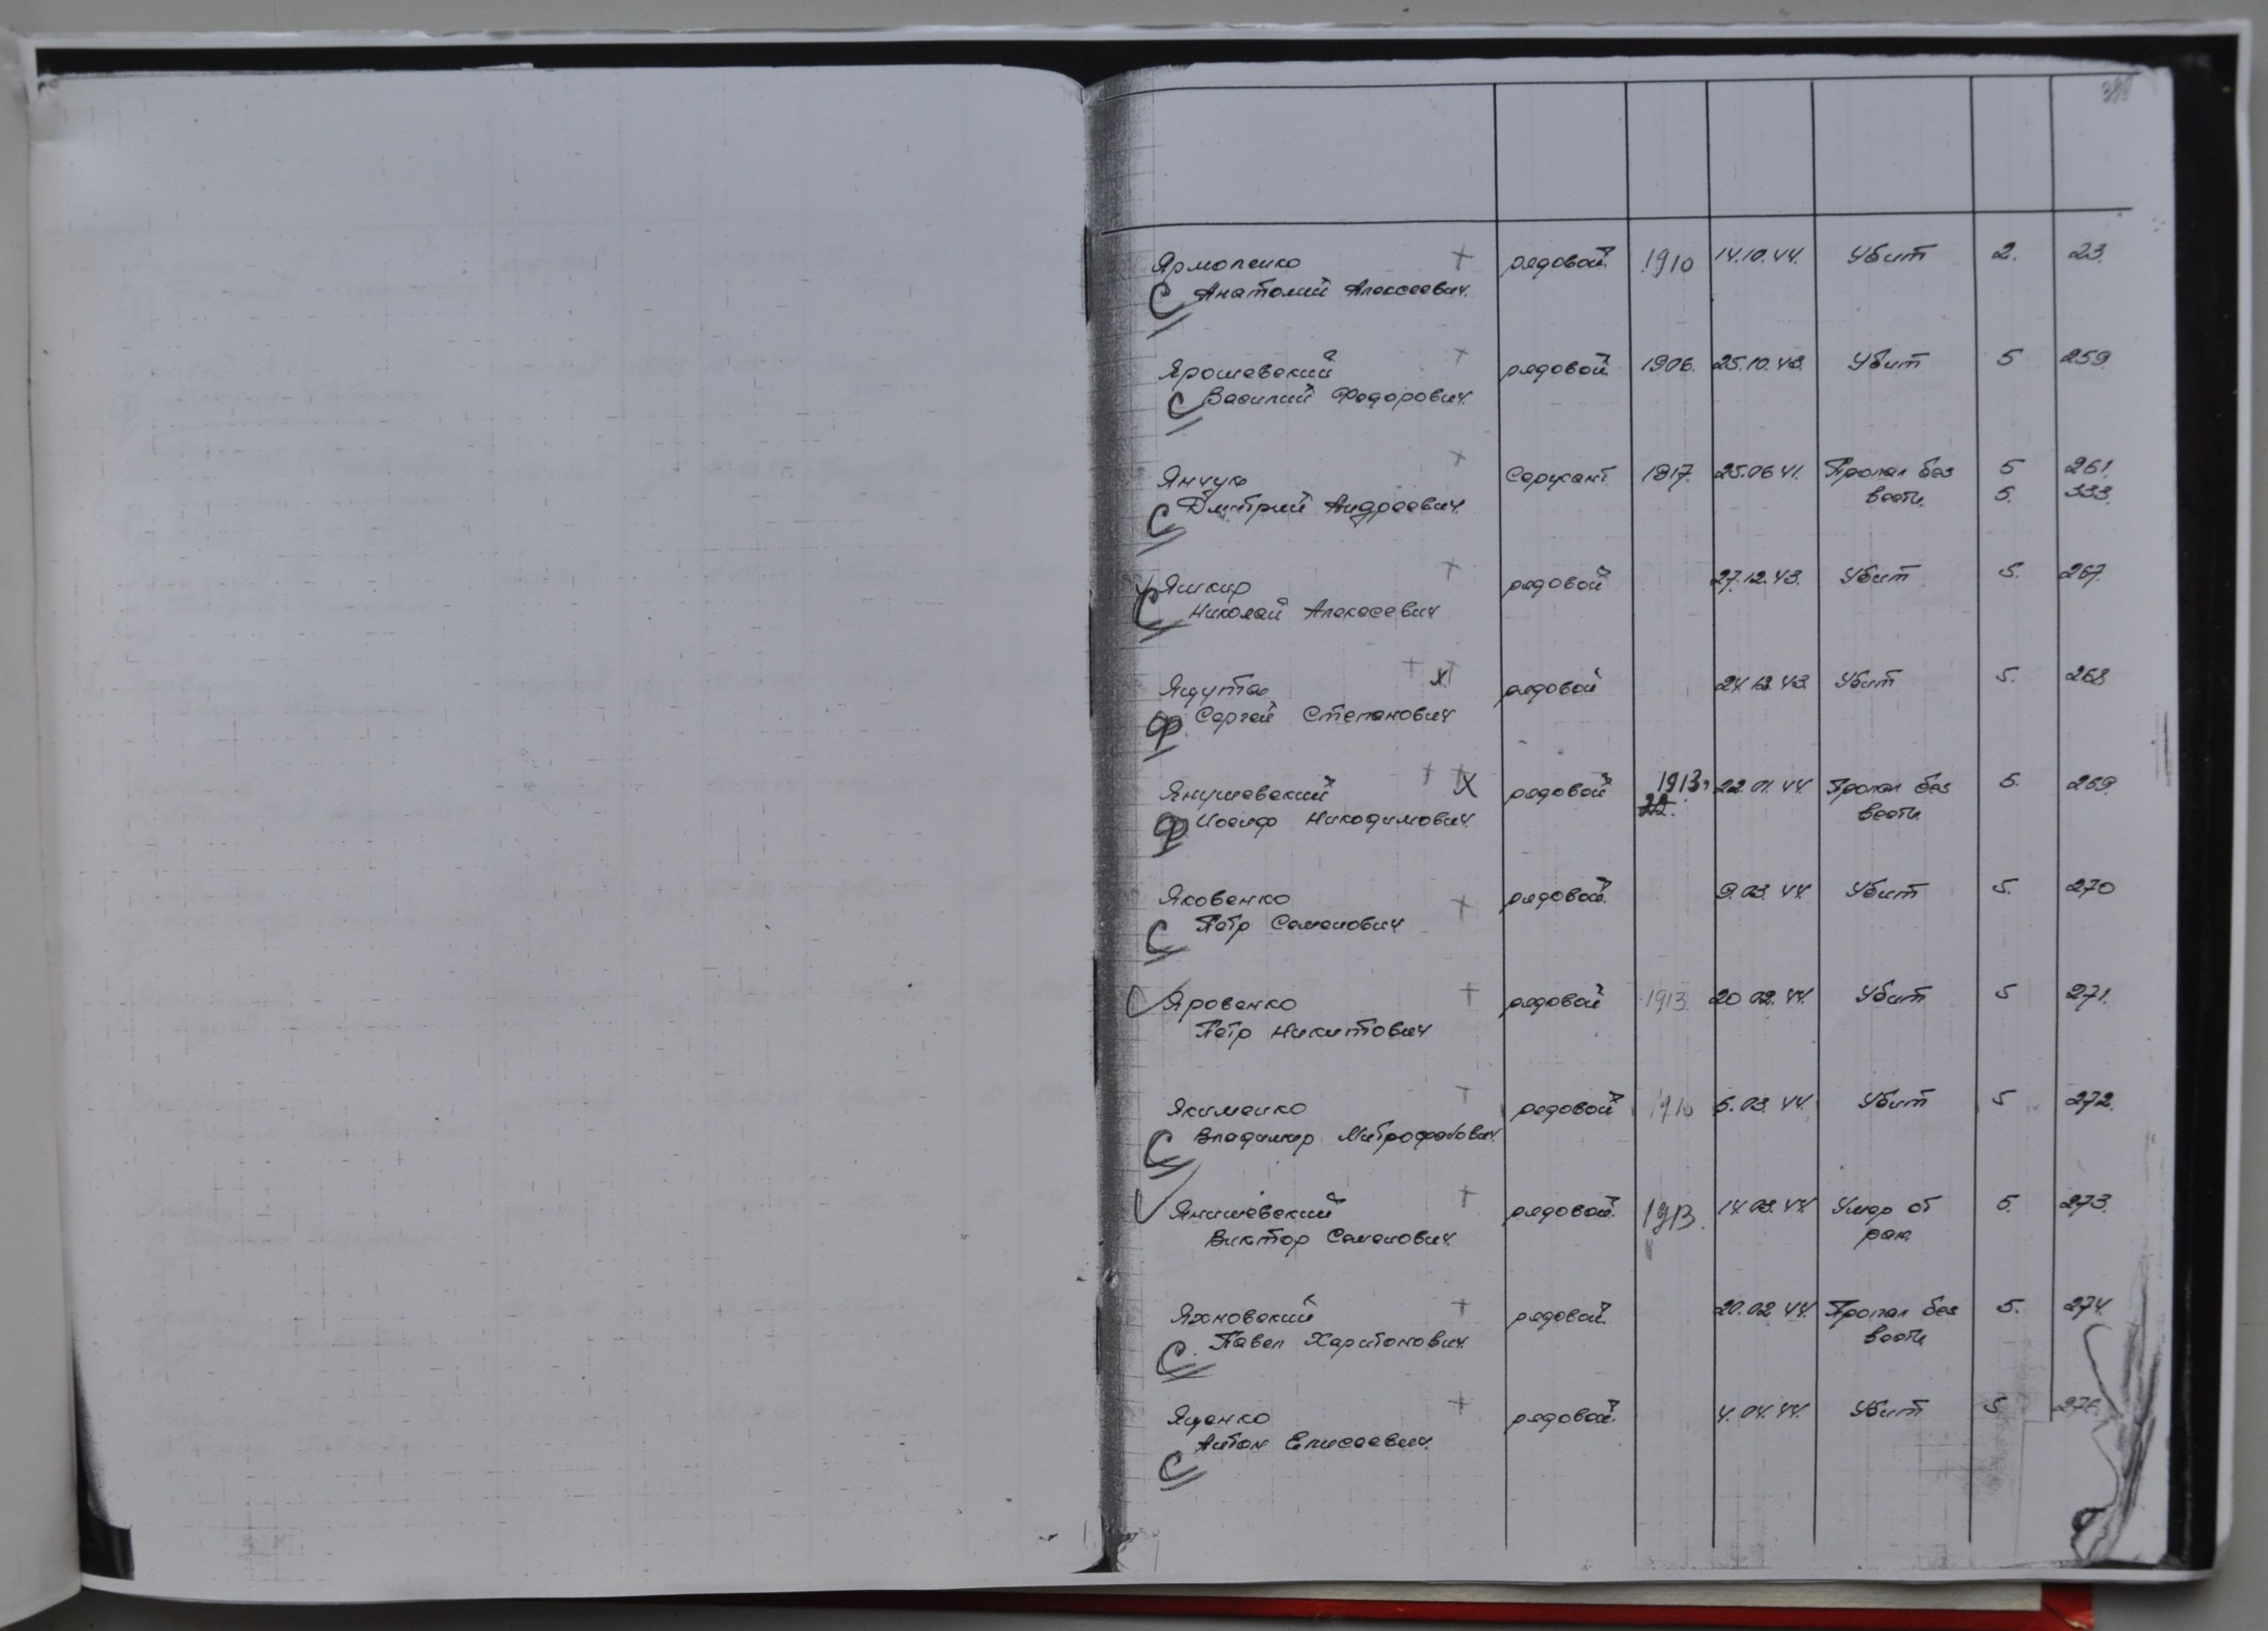 Ярмоленко + рядовой 1910 14.10.44. Убит 2. 23.
С Анатолий Алексеевич.
Ярошевский + рядовой 1906. 25.10.43. Убит 5 259.
С Василий Федорович.
Янчук + Сержант 1917. 25.06 41. Пропал без 5 261.
С Дмитрий Андреевич. вести. 5. 333.
Яшкир + рядовой 27.12.43. Убит 5. 267.
С Николай Алексеевич
Яцута + х рядовой 24.12.43. Убит 5. 268
Ф. Сергей Степанович.
Янушевский + + х рядовой 1913г. 22.01.44. Пропал без 5. 269.
Ф. Иосиф Никодимович. 22. вести.
Яковенко + рядовой. 9.03.44. Убит 5. 270
С Пётр Семенович
Яровенко + рядовой 1913 20 02.44. Убит 5 271.
Пётр Никитович
Якименко + рядовой 1910 5.03.44. Убит 5 272.
С Владимир Митрофанович.
Янишевский + рядовой. 1913. 14.03.44. Умер от 5. 273.
Виктор Семенович. ран.
Яхновский + рядовой. 20.02.44. Пропал без 5. 274.
С. Павел Харитонович. вести.
Яценко + рядовой. 4.04.44. Убит 5
С Антон Елисеевич.